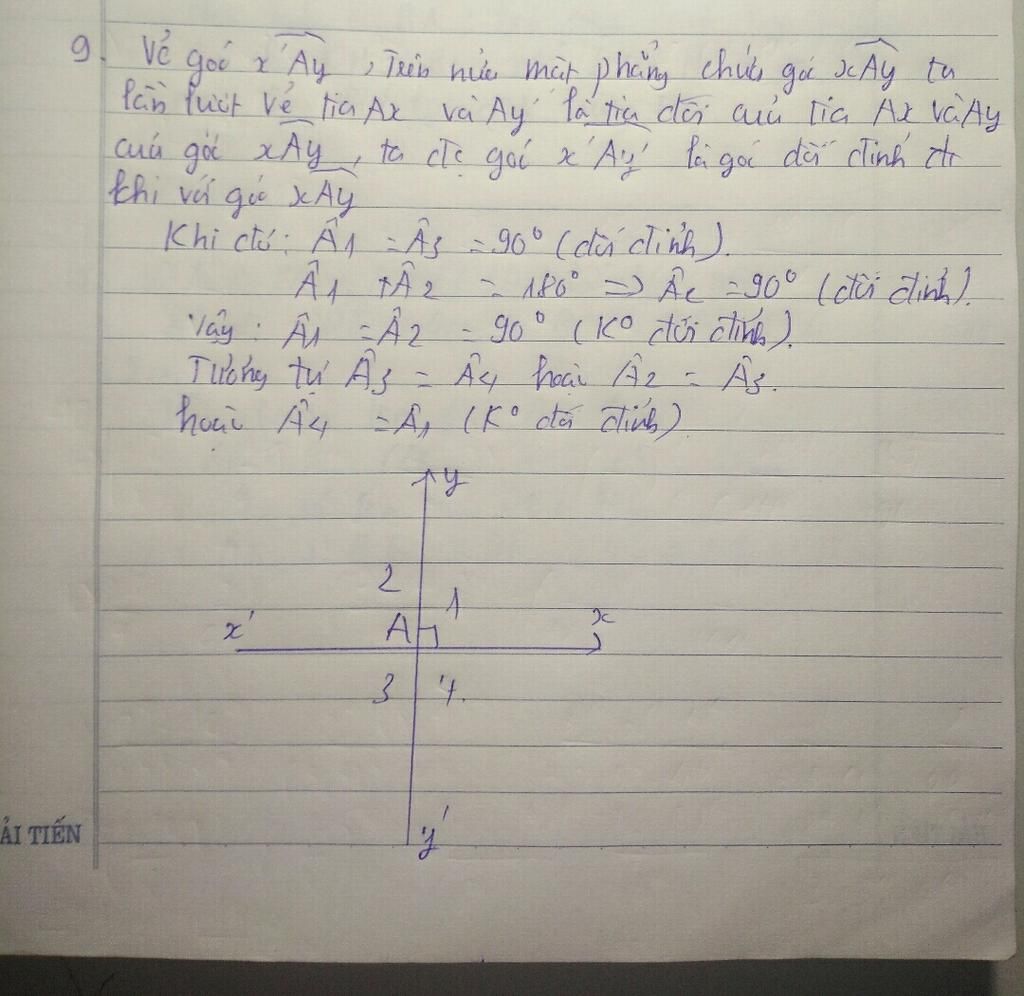 9. Vẽ góc x'Ây, Trên nửa mặt phẳng chứa góc xÂy ta
lần lượt vẽ tia Ax và Ay' là tia đối của tia Ax và Ay
của góc xÂy, ta đc góc x'Ây' là góc đối đỉnh
khi với góc xÂy
Khi đó: Â1 = Â3 = 90° (đối đỉnh).
Â1 + Â2 = 180° => Â2 = 90° (đối đỉnh).
Vậy: Â1 = Â2 = 90° (K° đối đỉnh).
Tương tự Â3 = Â4 hoặc Â2 = Â3.
hoặc Â4 = Â1 (K° đối đỉnh)
y
2
1
x' A x
3 4.
y'
ẢI TIẾN